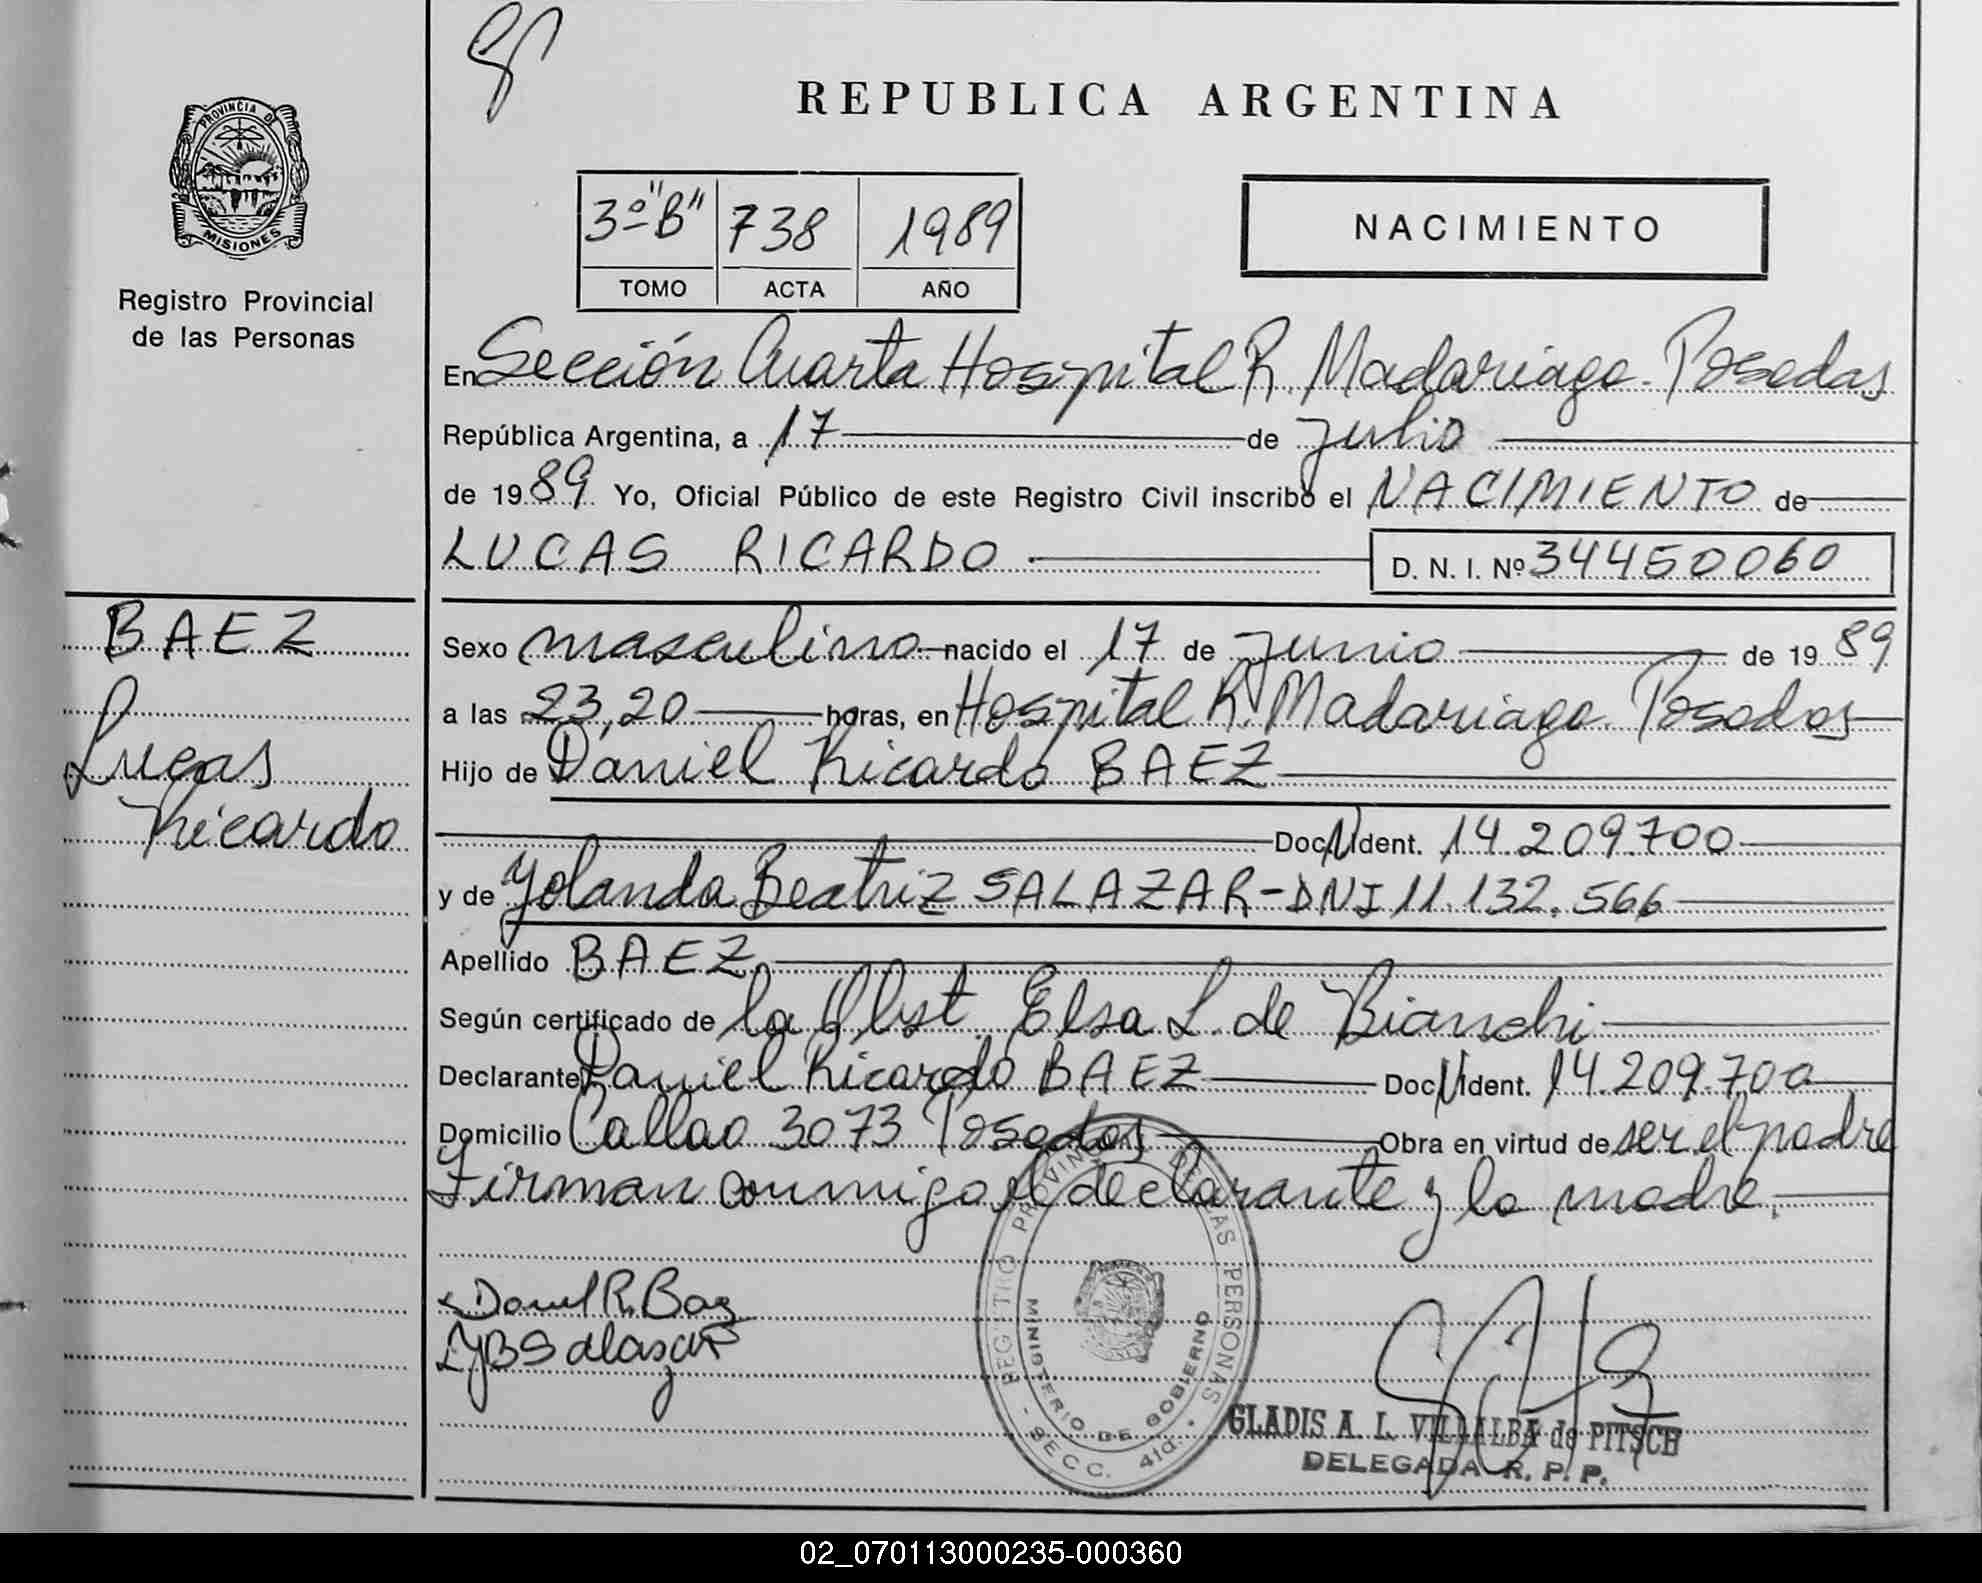 REPUBLICA ARGENTINA
PROVINCIA DE
MISIONES
Registro Provincial
de las Personas
3º "B" 738 1989
TOMO ACTA AÑO
NACIMIENTO
En Sección Cuarta Hospital R. Madariaga. Posadas
República Argentina, a 17 de julio
de 1989 Yo, Oficial Público de este Registro Civil inscribo el NACIMIENTO de
LUCAS RICARDO D. N. I. Nº 34450060
BAEZ
Lucas
Ricardo
Sexo masculino nacido el 17 de junio de 1989
a las 23,20 horas, en Hospital R. Madariaga. Posadas
Hijo de Daniel Ricardo BAEZ
Doc. N. Ident. 14.209.700
y de Yolanda Beatriz SALAZAR - DNI 11.132.566
Apellido BAEZ
Según certificado de la Obst. Elsa L. de Bianchi
Declarante Daniel Ricardo BAEZ Doc. N. Ident. 14.209.700
Domicilio Callao 3073 Posadas Obra en virtud de ser el padre
Firman conmigo el declarante y la madre.
Daniel R. Baez
YBSalazar
REGISTRO PROVINCIAL DE LAS PERSONAS
MINISTERIO DE GOBIERNO
- SECC. 4ta. -
GLADIS A. L. VILLALBA de PITSCH
DELEGADA R. P. P.
02_070113000235-000360